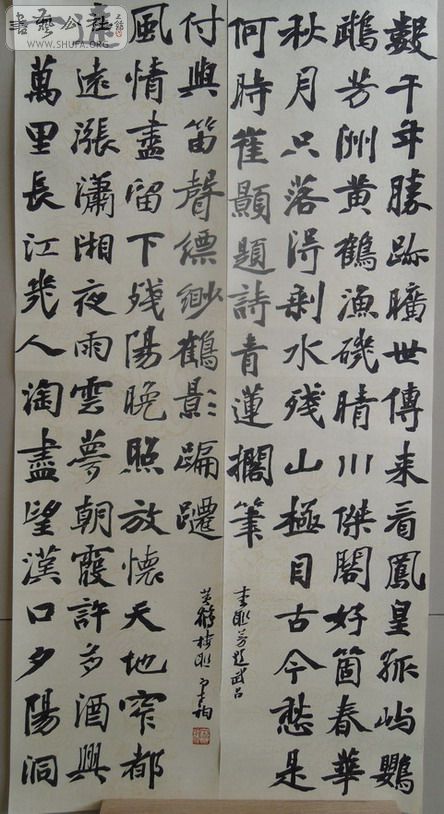 書藝公社
WWW.SHUFA.ORG
數千年勝跡曠世傳来看鳳皇孤嶼鸚
鵡芳洲黄鶴漁磯晴川傑閣好箇春華
秋月只落得剩水殘山極目古今愁是
何時崔顥題詩青蓮擱筆
萬里長江幾人淘盡望漢口夕陽洞
遠漲瀟湘夜雨雲夢朝霞許多酒興
風情盡留下殘陽晚照放懷天地窄都
付與笛聲縹緲鶴影蹁躚
武昌
黄鶴樓联